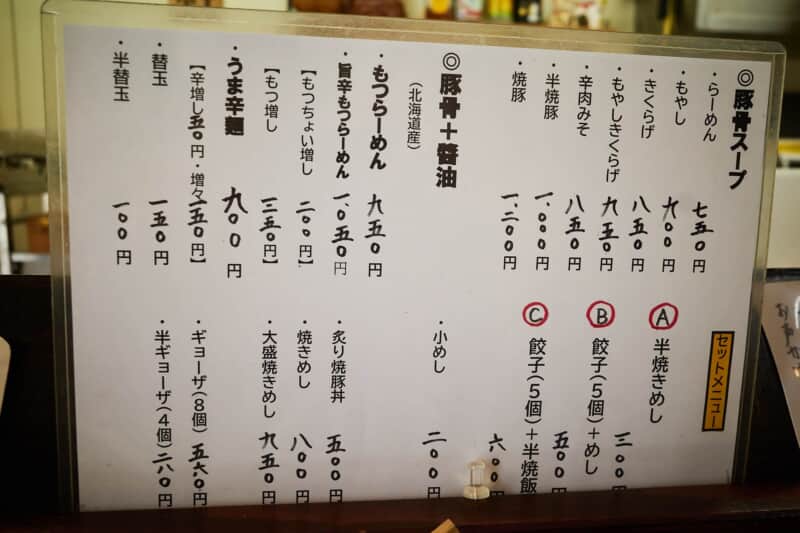 ◎豚骨スープ
・らーめん 七五〇円
・もやし 八〇〇円
・きくらげ 八五〇円
・もやしきくらげ 九五〇円
・辛肉みそ 八五〇円
・半焼豚 一、〇〇〇円
・焼豚 一、二〇〇円
◎豚骨＋醬油
(北海道産)
・もつらーめん 九五〇円
・旨辛もつらーめん 一、〇五〇円
【もつちょい増し 二〇〇円】
【もつ増し 三五〇円】
・うま辛麺 九〇〇円
【辛増し五〇円・増々一五〇円】
・替玉 一五〇円
・半替玉 一〇〇円
セットメニュー
Ⓐ 半焼きめし 三〇〇円
Ⓑ 餃子(5個)＋めし 五〇〇円
Ⓒ 餃子(5個)＋半焼飯 六〇〇円
・小めし 二〇〇円
・炙り焼豚丼 五〇〇円
・焼きめし 八〇〇円
・大盛焼きめし 九五〇円
・ギョーザ(8個) 五六〇円
・半ギョーザ(4個) 二八〇円